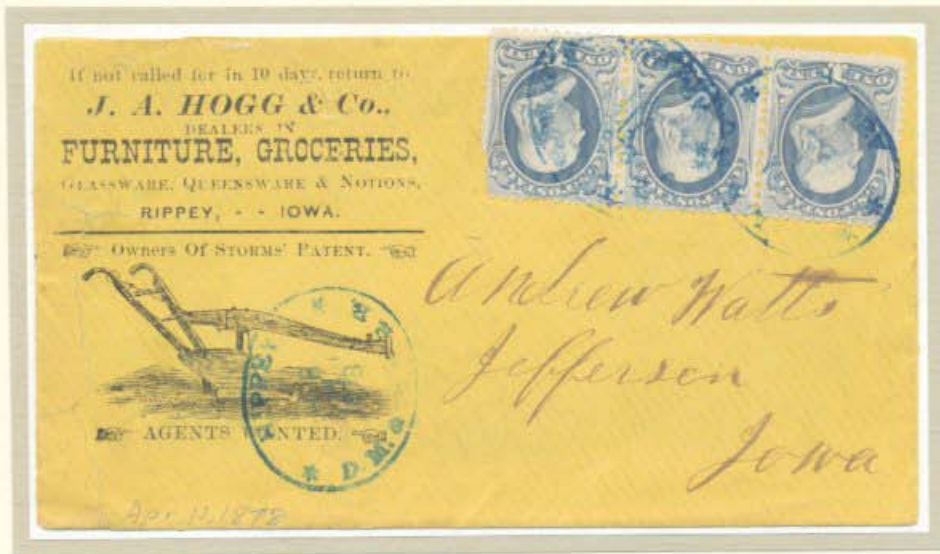 If not called for in 10 days, return to
J. A. HOGG & Co.,
DEALERS IN
FURNITURE, GROCERIES,
GLASSWARE, QUEENSWARE & NOTIONS,
RIPPEY, - - IOWA.
Owners Of STORMS' PATENT.
AGENTS WANTED.
Andrew Watts
Jefferson
Iowa
Apr 12, 1878